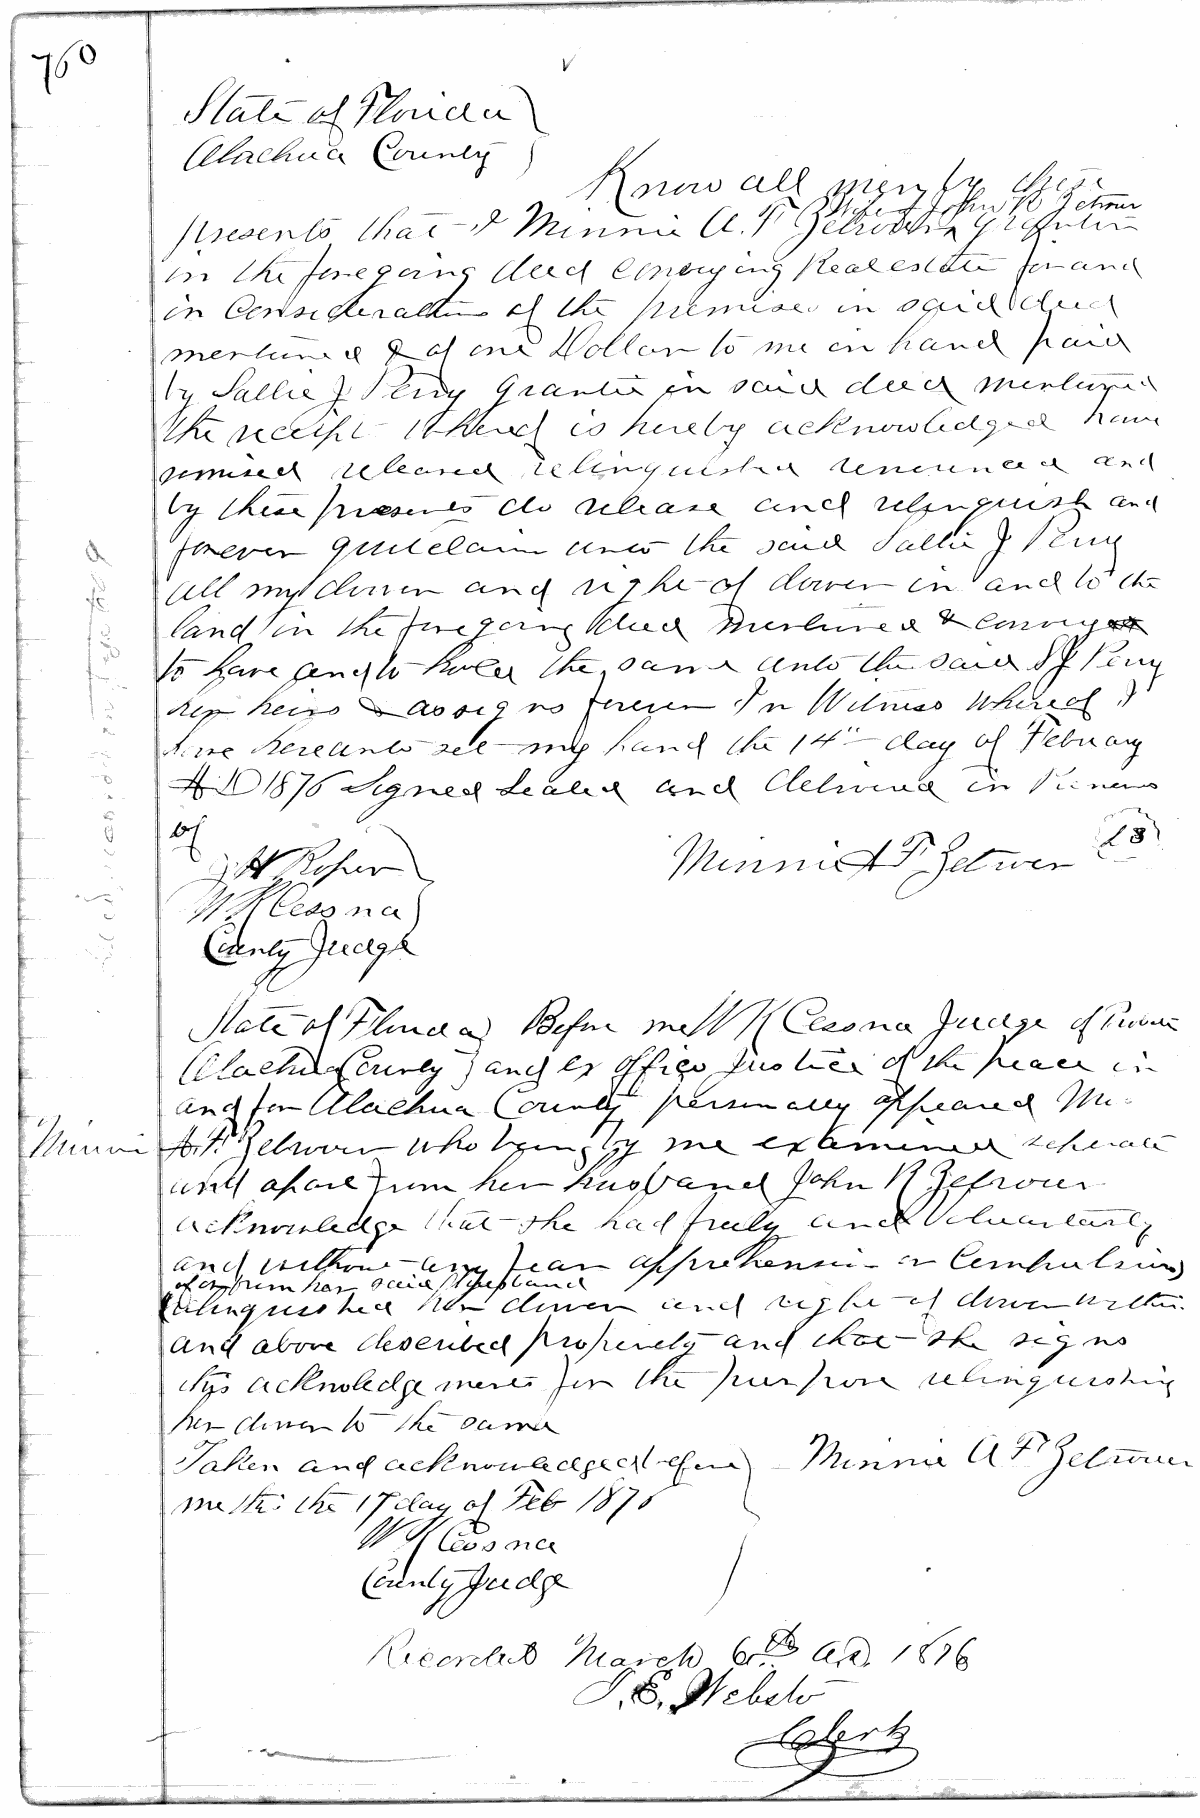 760
State of Florida
Alachua County
Know all men by these
wife of John R Zetrour
presents that I Minnie A. F Zetrour grantor
in the foregoing deed conveying Real estate for and
in consideration of the premises in said deed
mentioned & of one Dollar to me in hand paid
by Sallie J Perry Grantee in said deed mentioned
the receipt whereof is hereby acknowledged have
remised released relinquished renounced and
by these presents do release and relinquish and
forever quitclaim unto the said Sallie J Perry
all my dower and right of dower in and to the
land in the foregoing deed mentioned & conveyed
to have and to hold the same unto the said S J Perry
her heirs & assigns forever In Witness Whereof I
have hereunto set my hand the 14th day of Febuary
AD 1876 Signed Sealed and delivered in Presence
of
H Roper
Minnie A F Zetrouer LS
W K Cessna
County Judge
State of Florida Before me W K Cessna Judge of Probate
Alachua County and ex officio Justice of the peace in
and for Alachua County personally appeared
Minnie A. F. Zetrouer who being by me examined seperate
and apart from her husband John R Zetrouer
acknowledge that she had freely and voluntarily
and without any fear apprehension or Compulsion
of or from her said Husband
relinquished her dower and right of dower within
and above described property and that she signs
this acknoledgement for the purpose relinquishing
her dower to the same
Taken and acknowledged before
Minnie A F Zetrouer
me this the 17 day of Feb 1876
W K Cessna
County Judge
Recorded March 6th A.D. 1876
J. E. Webster
Clerk